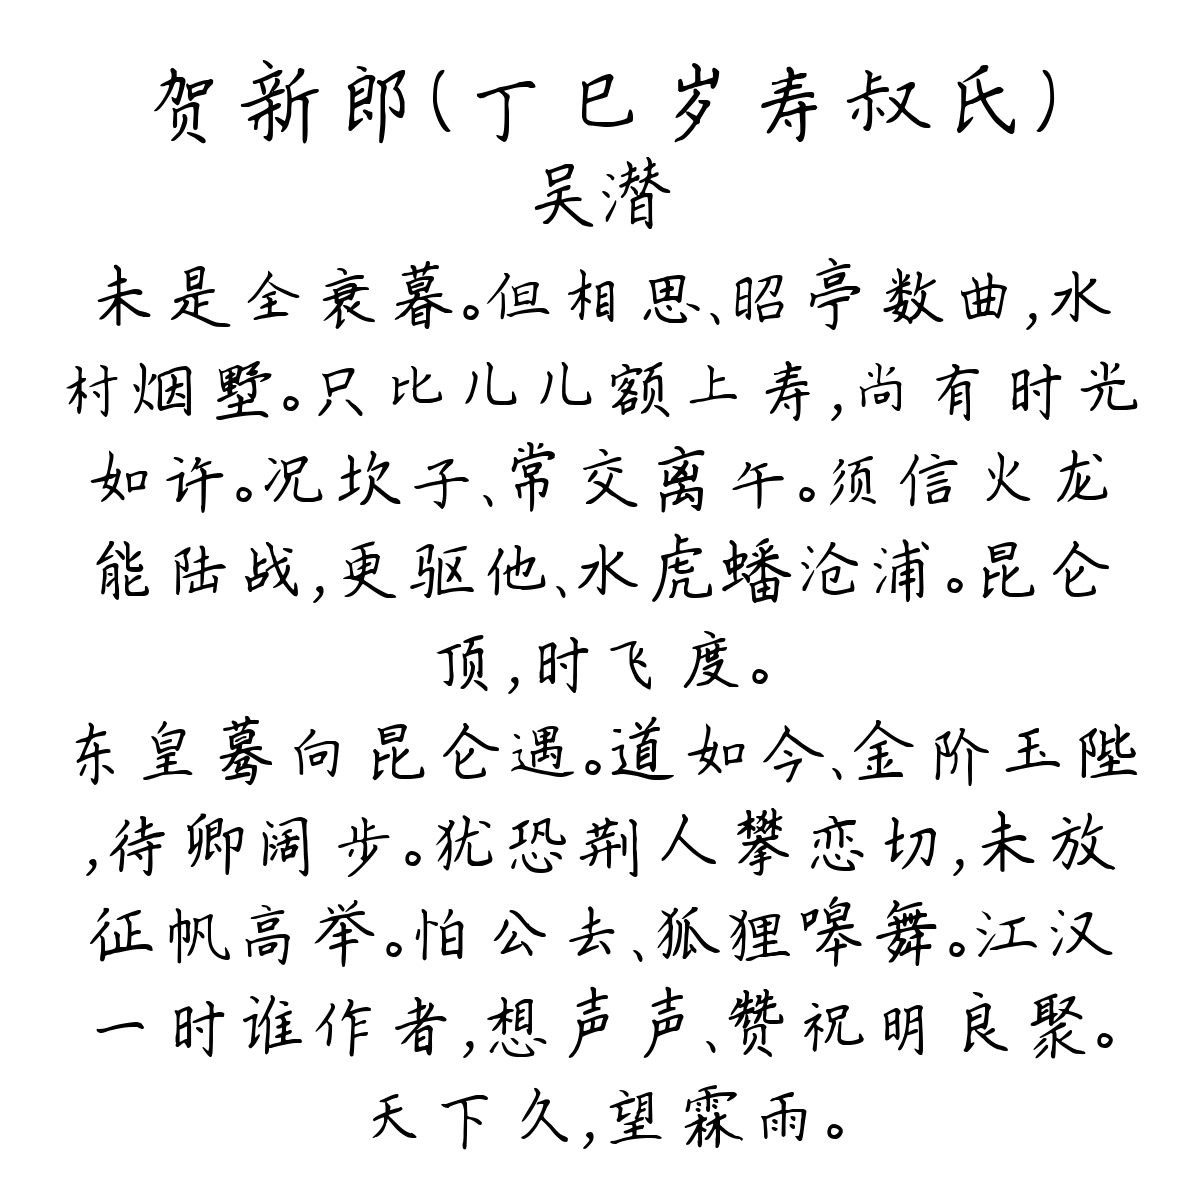 贺新郎(丁巳岁寿叔氏)
吴潜
未是全衰暮。但相思、昭亭数曲,水
村烟墅。只比儿儿额上寿,尚有时光
如许。况坎子、常交离午。须信火龙
能陆战,更驱他、水虎蟠沧浦。昆仑
顶,时飞度。
东皇蓦向昆仑遇。道如今、金阶玉陛
,待卿阔步。犹恐荆人攀恋切,未放
征帆高举。怕公去、狐狸嗥舞。江汉
一时谁作者,想声声、赞祝明良聚。
天下久,望霖雨。